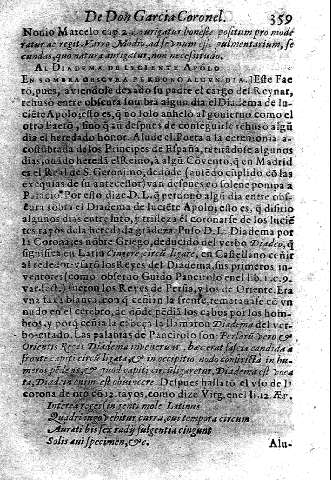 De Don Garcia Coronel. 359
Nonio Marcelo cap. 2. aurigatur honeste positum pro mode
ratur ac regit. Varro Modio, ad secundum
cundas, quo natura aurigatur, non necessitudo.
AL DIADEMA DE LUCIENTE APOLO
EN SOMBRA OBSCURA PERDONO ALGUN DIA.] Este Fae
tō, pues, aviendole dado su padre el cargo del Reynar,
rehusó entre obscura sōbra algun dia el Diadema de lu-
ciēte Apolo; esto es, q̄ no solo anheló al govierno como el
otro Faetō, sino q̄ aun despues de conseguirle rehusó algū
dia el heredado honor. Alude el Poeta a la ceremonia a-
costūbrada de los Principes de España, retirādose algunos
dias, quādo heredā el Reino, à algū Cōvento, q̄ en Madrid
es el Real de S. Geronimo, dedōde (aviēdo cūplido cō las
exequias de su antecessor) van despues en solene pompa a
Palacio. Por esto dize D. L. q̄ perdonò algū dia entre obs-
cura sōbra el Diadema de luciēte Apolo; esto es, q̄
algunos dias entre luto, y tristeza el coronarse de los luciē
tes rayos de la heredada grādeza. Puso D. L. Diadema por
la Corona; es nōbre Griego, deducido del verbo Diadeo, q̄
significa en Latin Cingere circūligare, en Castellano ceñir
al rededor
ventores (como observò Guido Panciroло en el lib. 1. c. 9.
fueron los Reyes de Persia, y los de Oriente. Era
vna faxa blanca, con q̄ ceñian la frente, rematavase cō vn
nudo en el cerebro, de donde pēdiā los cabos por los hom-
bros, y porq̄ ceñia la cabeça la llamaron Diadema del ver-
bo citado. Las palabras de Pancirolo son: Persarū verò &
Orientis Reges Diadema invenerunt, hac erat fascia candida
fronte capiti circūligata, & in occipitio nodo constricta in hu-
meros pēdens, & quod capiti circūligaretur, Diadema est voca
ta, Despues hallarō el vso de la
corona de oro cō 12. rayos, como dize Virg. en el l. 12. Ær.
Interea reges ingenti mole Latinus
Quadriiugo vehitur curru, cui tempora circum
Aurati bis sex radij fulgentia cingunt
Solis avi specimen, &c.
Alu-